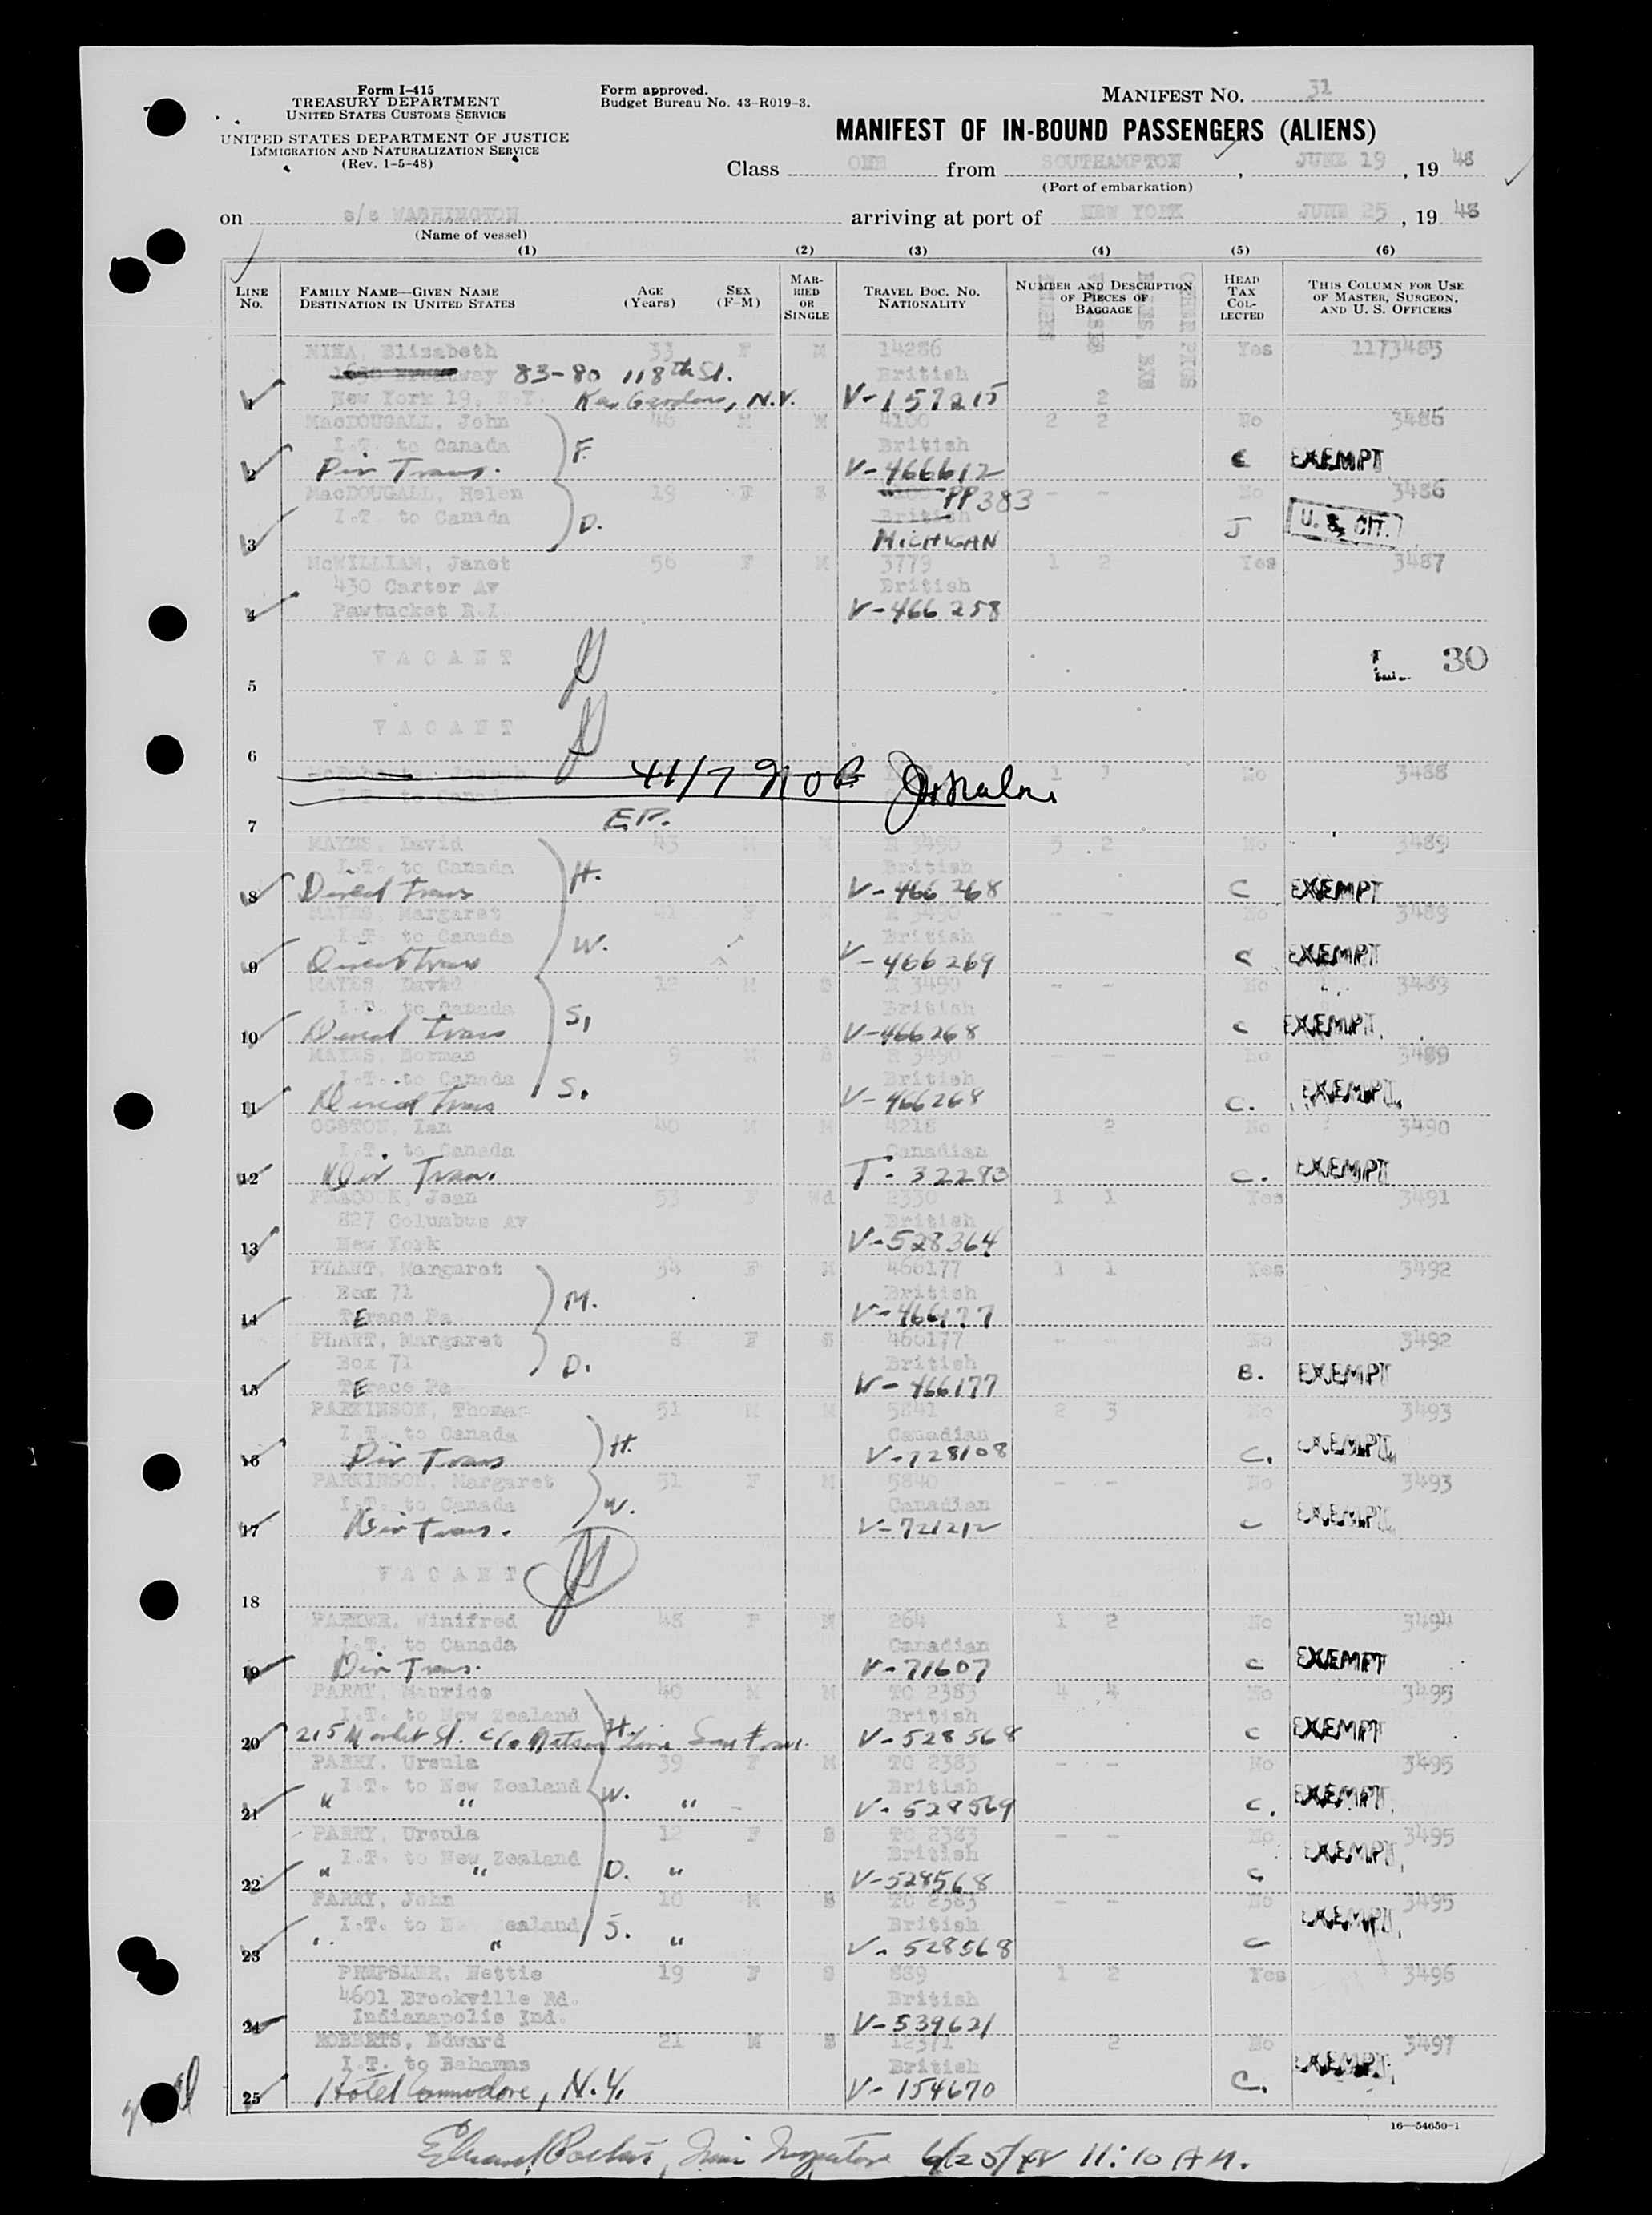 Form I-415
TREASURY DEPARTMENT
UNITED STATES CUSTOMS SERVICE
UNITED STATES DEPARTMENT OF JUSTICE
IMMIGRATION AND NATURALIZATION SERVICE
(Rev. 1-5-48)
Form approved.
Budget Bureau No. 43-R019-3.
MANIFEST NO. 31
MANIFEST OF IN-BOUND PASSENGERS (ALIENS)
Class ONE from SOUTHAMPTON, JUNE 19, 19 48
(Port of embarkation)
on s/s WASHINGTON arriving at port of NEW YORK JUNE 25, 19 48
(Name of vessel)
(1) (2) (3) (4) (5) (6)
LINE No.
FAMILY NAME—GIVEN NAME
DESTINATION IN UNITED STATES
AGE (Years)
SEX (F-M)
MARRIED OR SINGLE
TRAVEL DOC. NO.
NATIONALITY
NUMBER AND DESCRIPTION OF PIECES OF BAGGAGE
HEAD TAX COLLECTED
THIS COLUMN FOR USE OF MASTER, SURGEON, AND U. S. OFFICERS
Elizabeth 33 F M 14286 Yes 1173485
Broadway 83-80 118th St. British
1 New York 19, N.Y. Kew Gardens, N.Y. V-157215 2
MacDOUGALL, John 46 M M 4100 2 2 No 3486
I.T. to Canada F. British
2 Dir Trans. V-466612 C EXEMPT
MacDOUGALL, Helen 19 F S PP383 - - No 3486
I.T. to Canada D. British U. S. CIT.
3 MICHIGAN J
McWILLIAM, Janet 56 F M 3779 1 2 Yes 3487
430 Carter Av British
4 Pawtucket R.I. V-466258
VACANT 30
5
VACANT
6
41/7 NOB 1 No 3488
I.T. to Canada
7 EP.
MAYES, David 43 M M R 3490 5 2 No 3489
I.T. to Canada H. British
8 Direct trans V-466268 C EXEMPT
MAYES, Margaret 41 F M R 3490 - - No 3489
I.T. to Canada W. British
9 Direct trans V-466269 C EXEMPT
MAYES, David 12 M S R 3490 - - No 3489
I.T. to Canada S. British
10 Direct trans V-466268 C EXEMPT
MAYES, Norman 9 M S R 3490 - - No 3489
I.T. to Canada S. British
11 Direct trans V-466268 C. EXEMPT
OGSTON, Ian 40 M M 4218 2 No 3490
I.T. to Canada Canadian
12 Dir Tran. T-32283 C. EXEMPT
PEACOCK, Jean 53 F Wd R330 1 1 Yes 3491
827 Columbus Av British
13 New York V-528364
PLANT, Margaret 34 F M 466177 1 1 Yes 3492
Box 71 M. British
14 Terace Pa V-466177
PLANT, Margaret 8 F S 466177 - - No 3492
Box 71 D. British
15 Terace Pa V-466177 B. EXEMPT
PARKINSON, Thomas 51 M M 5841 2 3 No 3493
I.T. to Canada H. Canadian
16 Dir Trans V-728108 C. EXEMPT
PARKINSON, Margaret 51 F M 5840 - - No 3493
I.T. to Canada W. Canadian
17 Dir Trans. V-721212 C EXEMPT
VACANT
18
PARKER, Winifred 48 F M 264 1 2 No 3494
I.T. to Canada Canadian
19 Dir Trans. V-71607 C EXEMPT
PARRY, Maurice 40 M M TC 2383 4 4 No 3495
I.T. to New Zealand H. British
20 215 Market St. c/o Matson Line San Fran. V-528568 C EXEMPT
PARRY, Ursula 39 F M TC 2383 - - No 3495
I.T. to New Zealand W. British
21 " " " V-528569 C. EXEMPT
PARRY, Ursula 12 F S TC 2383 - - No 3495
I.T. to New Zealand D. British
22 " " " V-528568 C EXEMPT
PARRY, John 10 M S TC 2383 - - No 3495
I.T. to New Zealand S. British
23 " " " V-528568 C EXEMPT
Nettie 19 F S 889 1 2 Yes 3496
4601 Brookville Rd. British
24 Indianapolis Ind. V-539621
ROBERTS, Edward 21 M S 12371 2 No 3497
I.T. to Bahamas British
25 Hotel Commodore, N.Y. V-154670 C. EXEMPT
16—54650-1
6/25/48 11:10 AM.